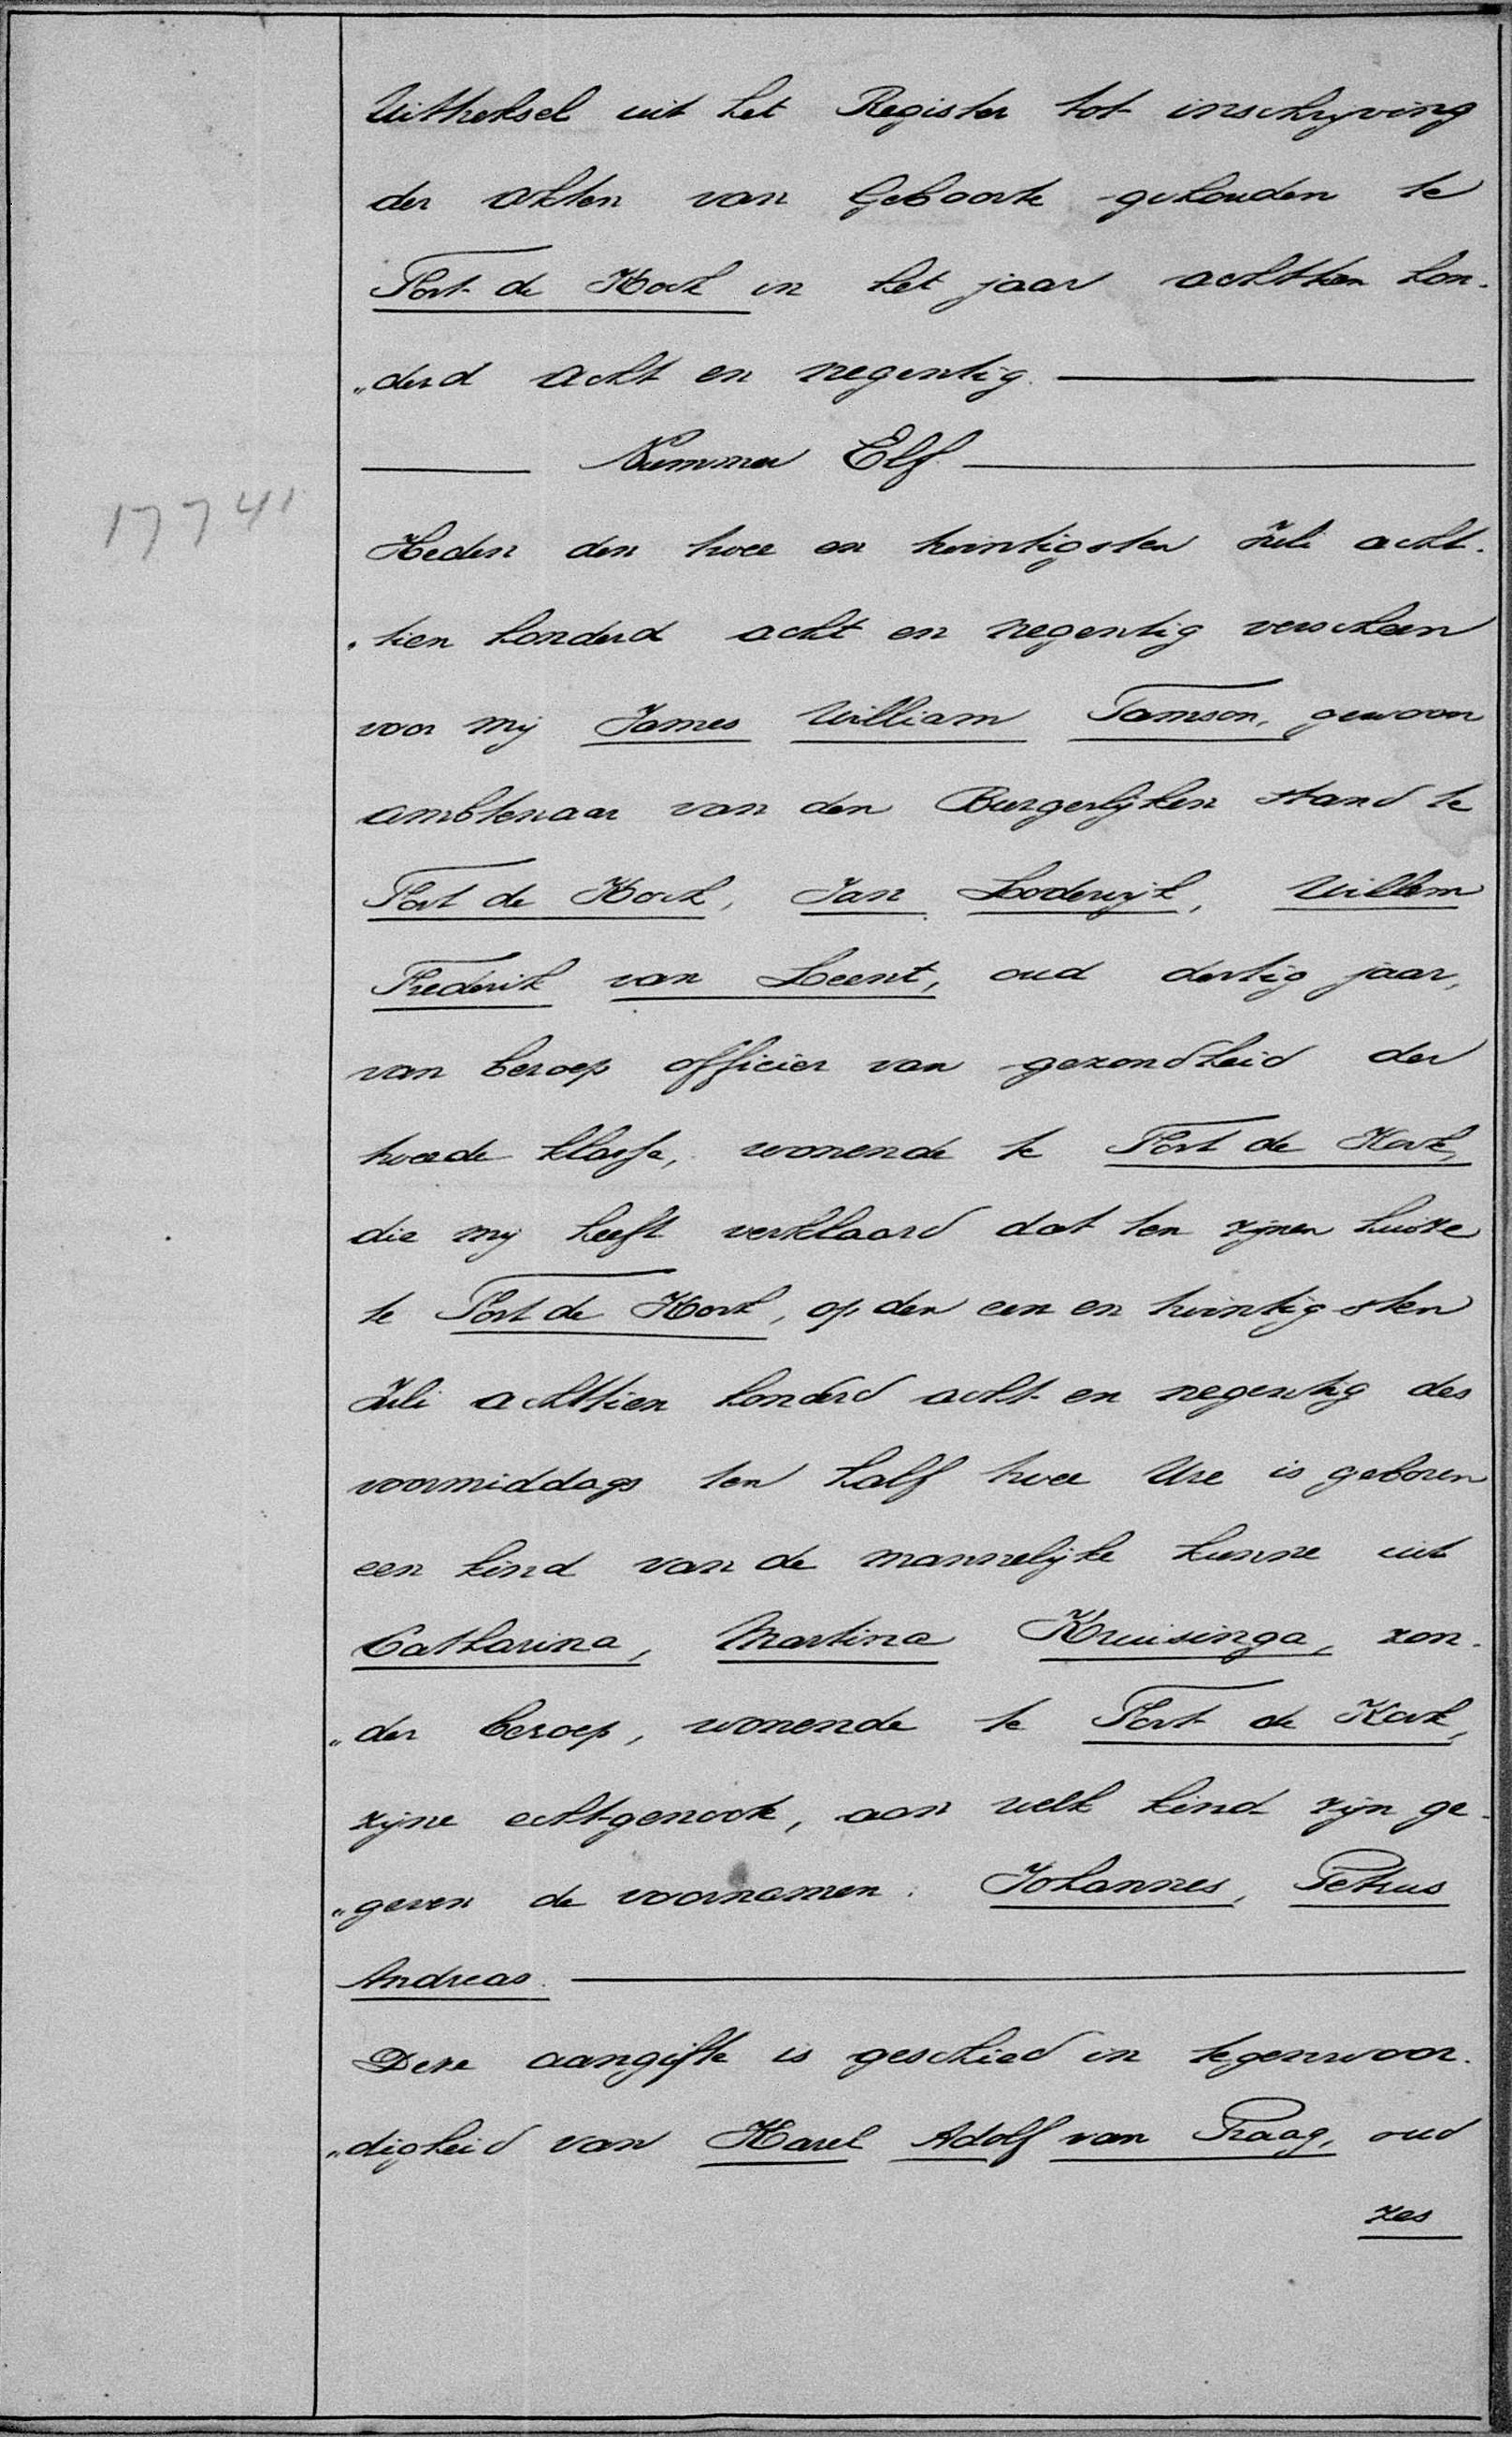 Uittreksel uit het Register tot inschrijving
der akten van Geboorte gehouden te
Fort de Kock in het jaar achttien hon-
„derd acht en negentig.
Nummer Elf
17741
Heden den twee en twintigsten Juli acht-
„tien honderd acht en negentig verscheen
voor mij James William Tamson, gewoon
ambtenaar van den Burgerlijken stand te
Fort de Kock, Jan Lodewijk, Willem
Frederik van Leent, oud dertig jaar,
van beroep officier van gezondheid der
tweede klasse, wonende te Fort de Kock,
die mij heeft verklaard dat ten zijnen huize
te Fort de Kock, op den een en twintigsten
Juli achttien honderd acht en negentig des
voormiddags ten half twee Ure is geboren
een kind van de mannelijke kunne uit
Catharina, Martina Kruisinga, zon-
„der beroep, wonende te Fort de Kock,
zijne echtgenoote, aan welk kind zijn ge-
„geven de voornamen: Johannes, Petrus
Andreas.
Deze aangifte is geschied in tegenwoor-
„digheid van Karel Adolf van Praag, oud
zes